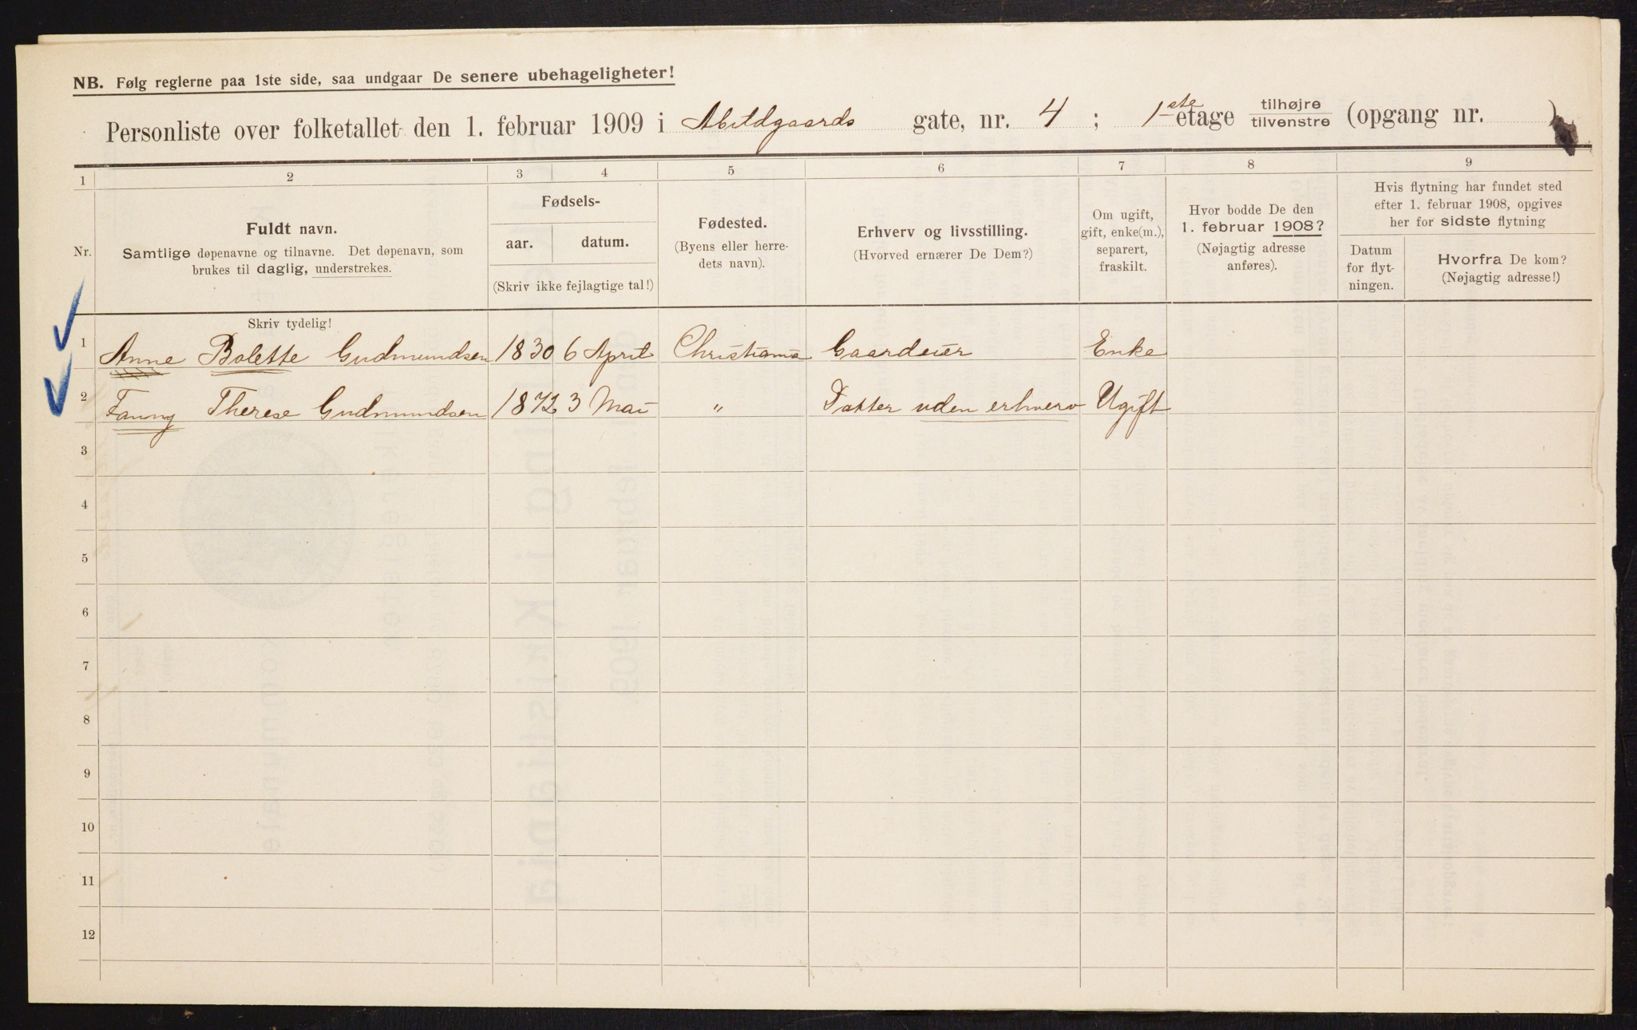 NB. Følg reglerne paa 1ste side, saa undgaar De senere ubehageligheter!
Personliste over folketallet den 1. februar 1909 i Abildgaards gate, nr. 4 ; 1ste etage tilhøjre tilvenstre (opgang nr. )
1 2 3 4 5 6 7 8 9
Nr.
Fuldt navn.
Samtlige døpenavne og tilnavne. Det døpenavn, som
brukes til daglig, understrekes.
Fødsels-
aar. datum.
(Skriv ikke fejlagtige tal!)
Fødested.
(Byens eller herre-
dets navn).
Erhverv og livsstilling.
(Hvorved ernærer De Dem?)
Om ugift,
gift, enke(m.),
separert,
fraskilt.
Hvor bodde De den
1. februar 1908?
(Nøjagtig adresse
anføres).
Hvis flytning har fundet sted
efter 1. februar 1908, opgives
her for sidste flytning
Datum
for flyt-
ningen.
Hvorfra De kom?
(Nøjagtig adresse!)
Skriv tydelig!
1 Anne Bolette Gudmundsen 1830 6 April Christiania Gaardeier Enke
2 Fanny Therese Gudmundsen 1872 3 Mai " Datter uden erhverv Ugift
3
4
5
6
7
8
9
10
11
12